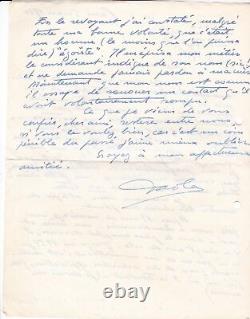 En le revoyant j'ai constaté, malgré
toute ma bonne volonté, que c'était
un homme (le moins que l'on puisse
dire) égoïste. Il méprise mon métier
le considérant indigne de son nom (sic)
et ne demanda jamais pardon à ma mère
Maintenant que mon nom est connu
il essaye de renouer un contact qu'il
avait volontairement rompu.
Ce que je viens de vous
confier, cher ami, restera entre nous
si vous le voulez bien, car c'est un coin
pénible du passé j'aime mieux oublier.
Croyez à mon affectueuse
amitié.